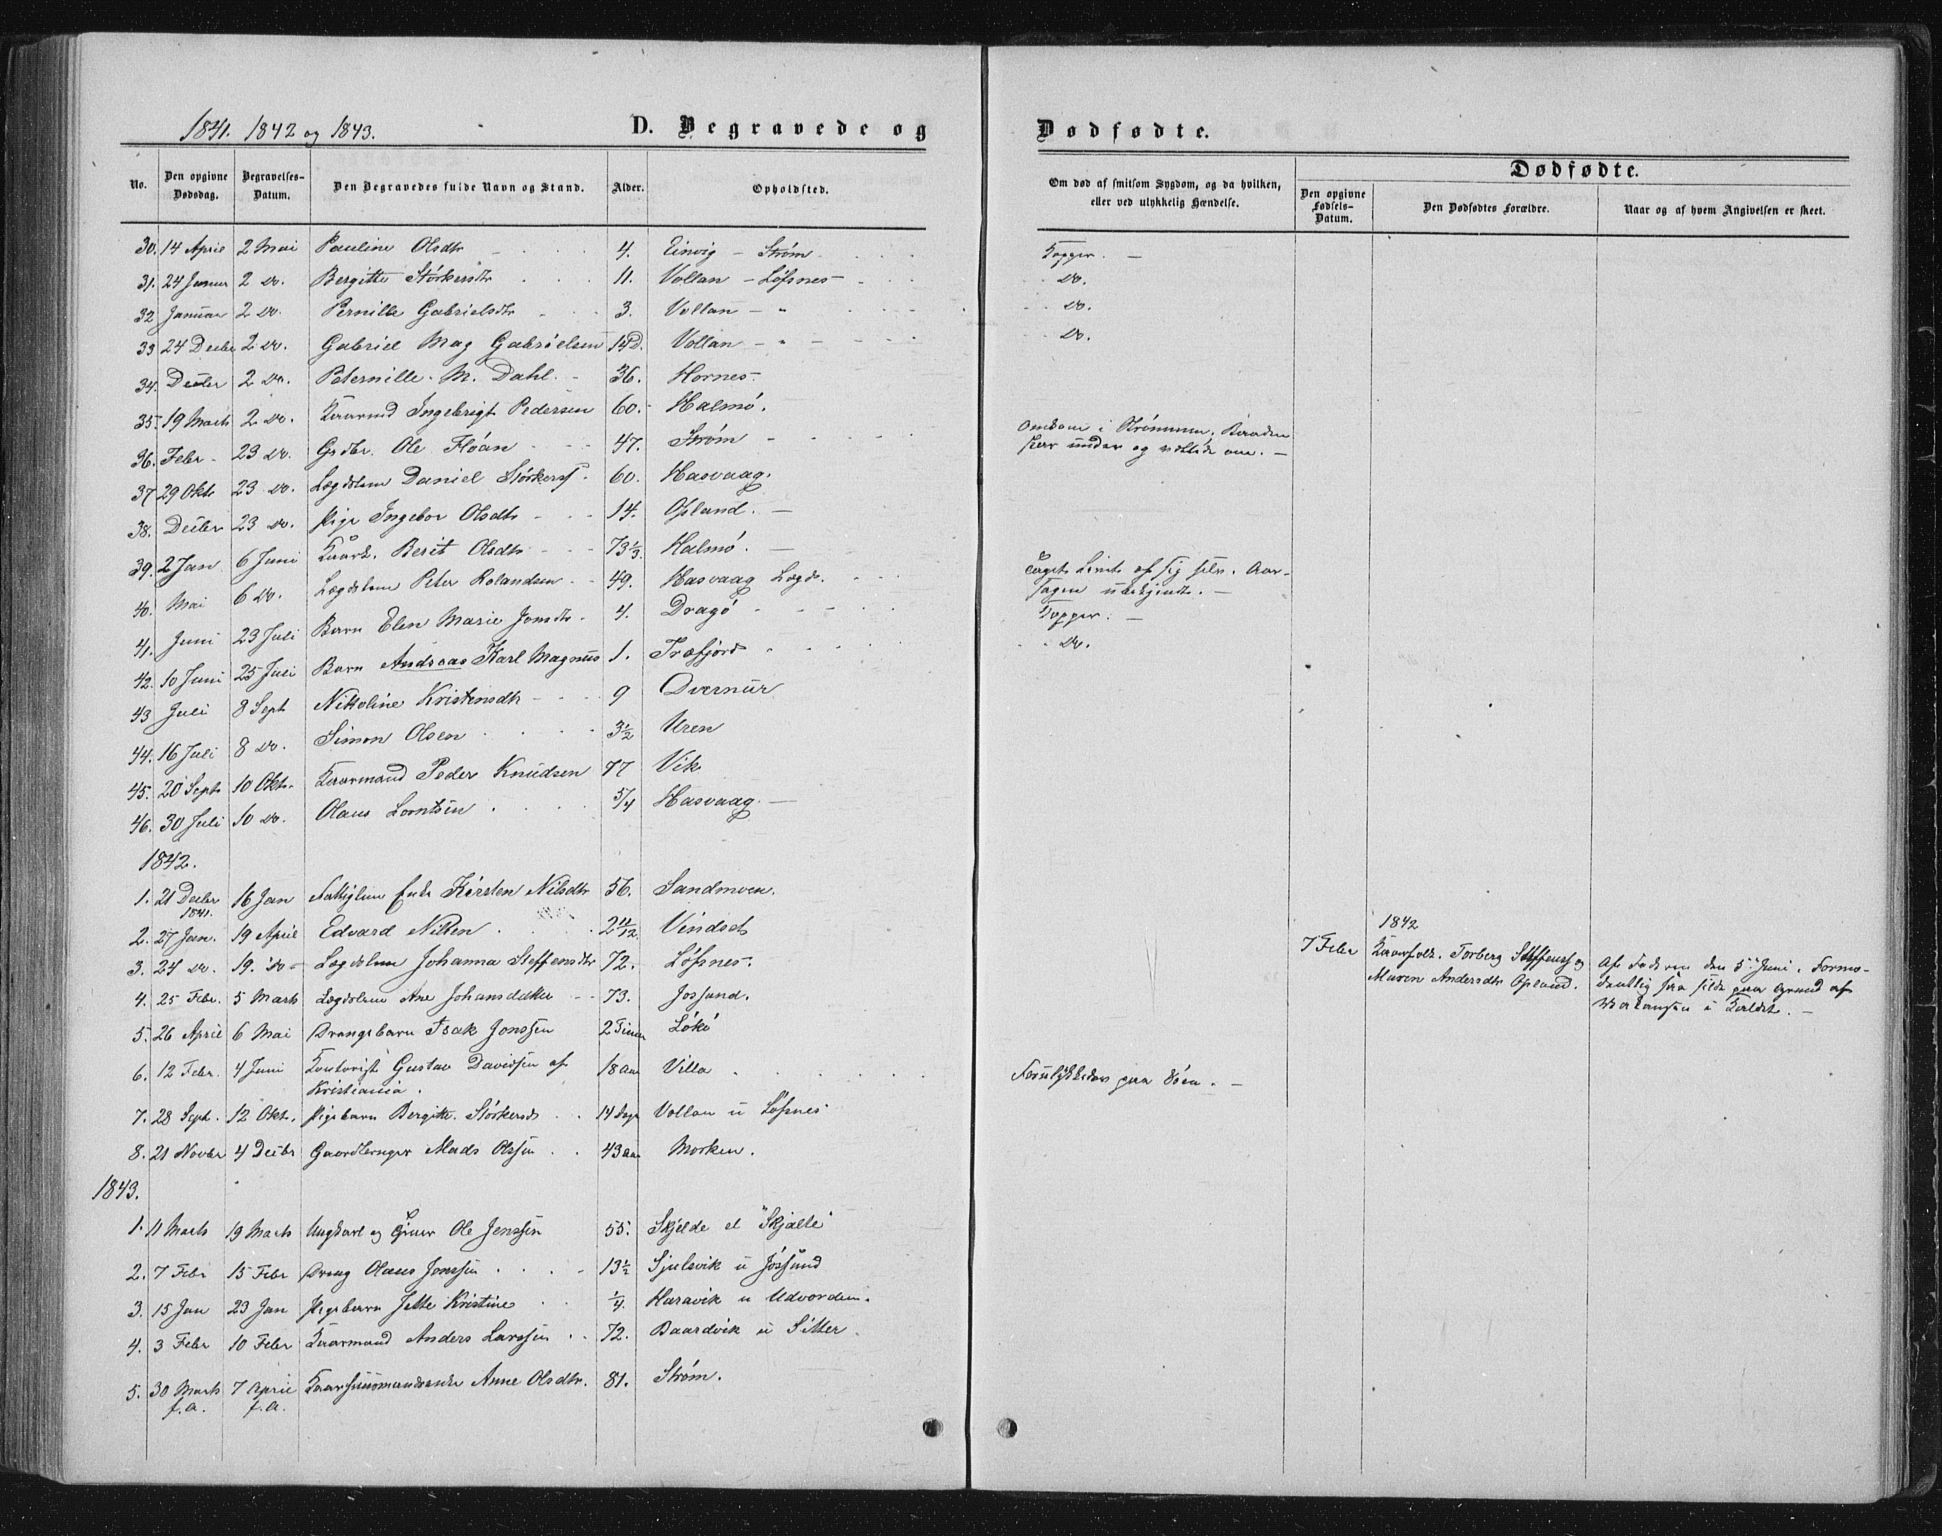 1841. 1842 og 1843.
D. Begravede og
Dødfødte.
No.
Den opgivne Dødsdag.
Begravelses-Datum.
Den Begravedes fulde Navn og Stand.
Alder.
Opholdsted.
Om død af smitsom Sygdom, og da hvilken, eller ved ulykkelig Hændelse.
Dødfødte.
Den opgivne Fødsels-Datum.
Den Dødfødtes Forældre.
Naar og af hvem Angivelsen er skeet.
30. 14 April 2 Mai Pauline Olsdtr 4. Einvig - Strøm Kopper. -
31. 24 Januar 2 Do. Bergitte Størkersdtr 11. Vollan - Løfsnes - Do.
32 Januar 2 Do. Pernille Gabrielsdtr 3. Vollan - " Do.
33 24 Decbr 2 Do. Gabriel Mag Gabrielsen 14D. Vollan - " Do.
34. Decbr 2 Do. Peternille M. Dahl. 36. Hornes -
35. 19 Marts 2 Do. Kaarmd Ingebrigt Pedersen 60. Halmø.
36. Febr - 23 Do. Gdbr. Ole Fløan 47. Strøm - Omkom i Strømmen. Baaden
skar under og væltede om. -
37 29 Okt 23 Do. Lægdslem Daniel Størkers. 60. Hasvaag.
38. Decbr 23 Do. Pige Ingebor Olsdtr 14. Opland. -
39. 2 Jan 6 Juni Kaark. Berit Olsdtr 73 1/3. Halmø. -
40. Mai 6 Do. Lægdslem Peter Rolandsen 49. Hasvaag Lægd. Taget Livet af sig selv. Aar-
sagen ubekjendt. -
41. Juni 23 Juli Barn Elen Marie Jonsdtr. 4. Dragø Kopper. -
42. 10 Juni 25 Juli Barn Andreas Karl Magnus 1. Træfjord Do.
43 Juli 8 Sept Nikoline Kristensdtr 9 Overnur
44. 16 Juli 8 Do. Simon Olsen 3 1/2 Uren
45. 20 Sept 10 Okt. Kaarmand Peder Knudsen 77 Vik
46. 30 Juli 10 Do. Olaus Lorntsen 5/4 Hasvaag. -
1842.
1. 21 Decbr 1841. 16 Jan Fattiglem Enke Kirsten Nilsdtr 56. Sandmoen.
2. 27 Jan. 19 April Edvard Nilsen 2 11/12. Vindset
3. 24 Do. 19. Do - Lægdslem Johanna Steffensdtr 72. Løfsnes.
1842
7 Febr Kaarfolk. Torberg Steffens. og
Maren Andersdtr Opland.
Af Faderen den 5te Juni. Formo-
dentlig saa silde paa Grund af
Vakansen i Kaldet. -
4. 25 Febr. 5 Marts Lægdslem Ane Johansdatter 73. Jossund.
5. 26 April 6 Mai Drengebarn Isak Jonssen 2 Timer Løkø
6. 12 Febr. 4 Juni Kontorist Gustav Davidsen af
Kristiania. 18 Aar Villa Forulykkedes paa Søen. -
7. 28 Sept. 12 Okt. Pigebarn Bergitte Størkersd. 14 Dage Vollan u Løfsnes
8. 21 Novbr 4 Decbr Gaardbruger Mads Olssen 43 Aar Morken.
1843.
1. 11 Marts 19 Marts Ungkarl og Ole Jenssen 55. Skjelde el "Skjalte"
2. 7 Febr 15 Febr Dreng Olaus Jonssen 13 1/2 Sjulsvik u Jøssund
3. 15 Jan 23 Jan Pigebarn Jette Kristine 1/4 Haravik u Udvorden.
4. 3 Febr 10 Febr Kaarmand Anders Larssen 72. Baardvik u Sitter.
5. 30 Marts f.a. 7 April f.a. Anne Olsdtr. 81. Strøm.